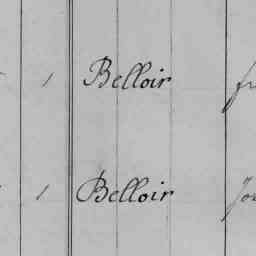 1 Belloir
1 Belloir